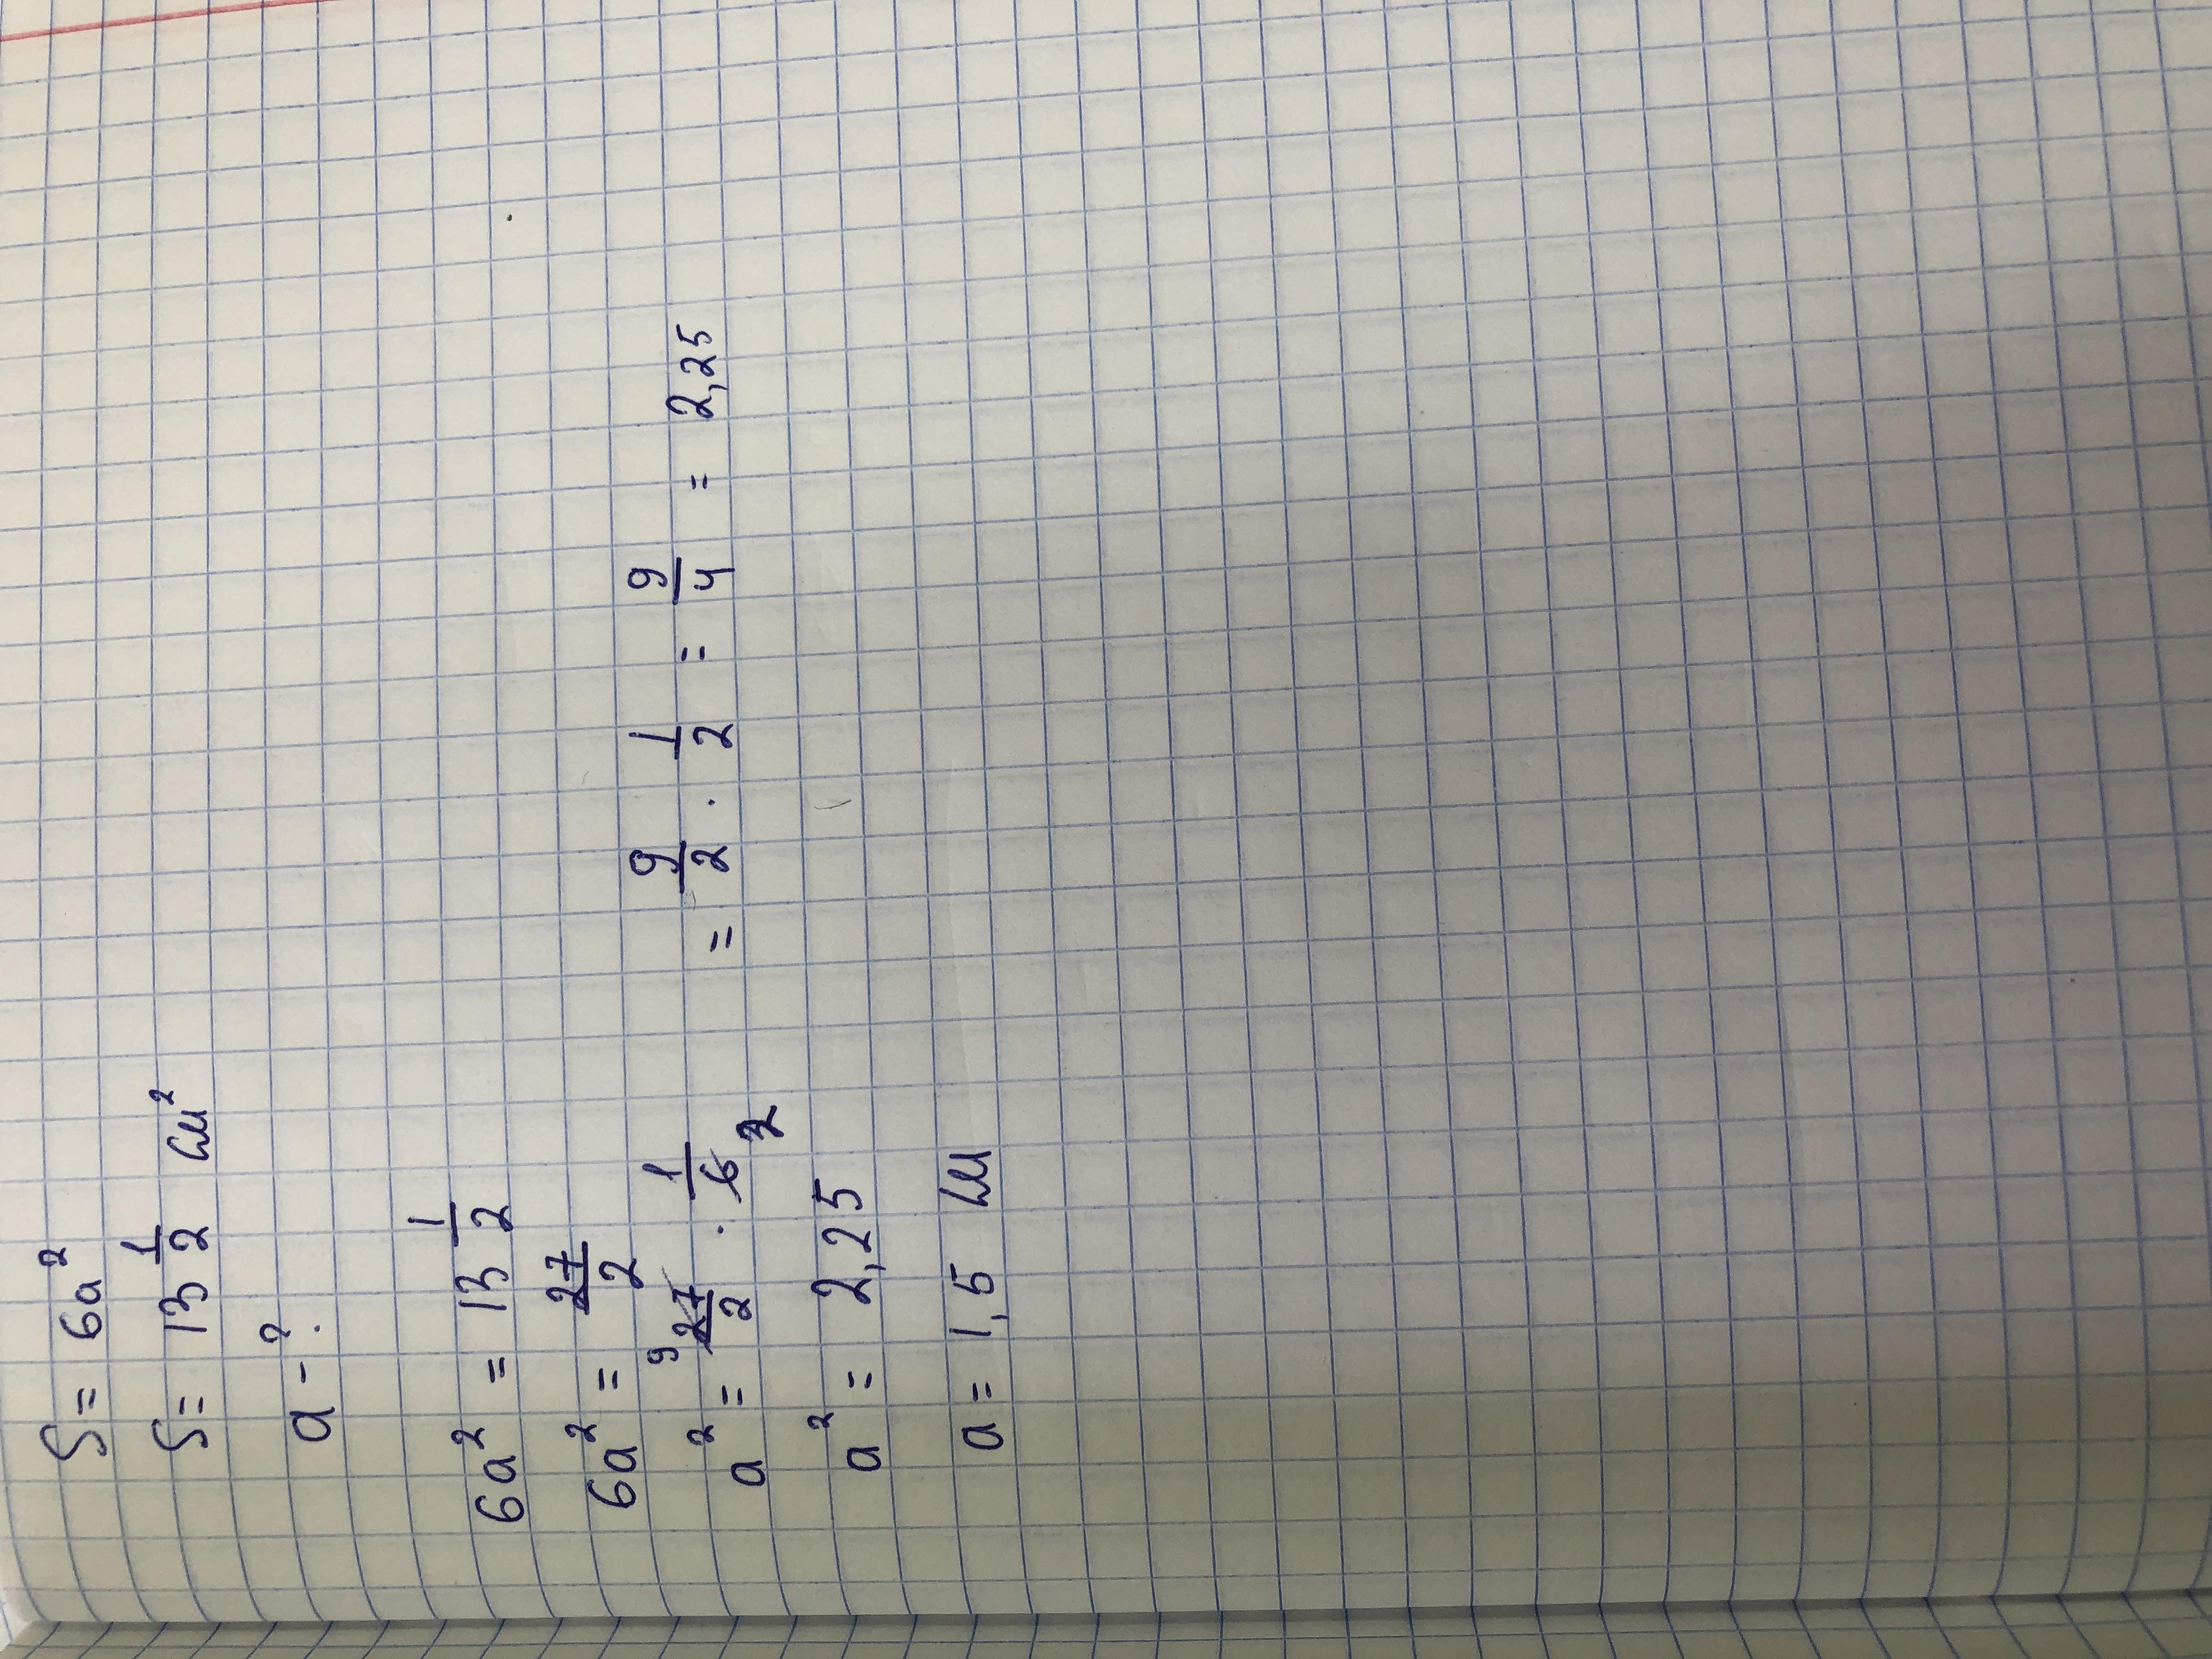 S = 6a²
S = 13 1/2 см²
a - ?
6a² = 13 1/2
6a² = 27/2
a² = 27/2 · 1/6 = 9/2 · 1/2 = 9/4 = 2,25
9 2
a² = 2,25
a = 1,5 см